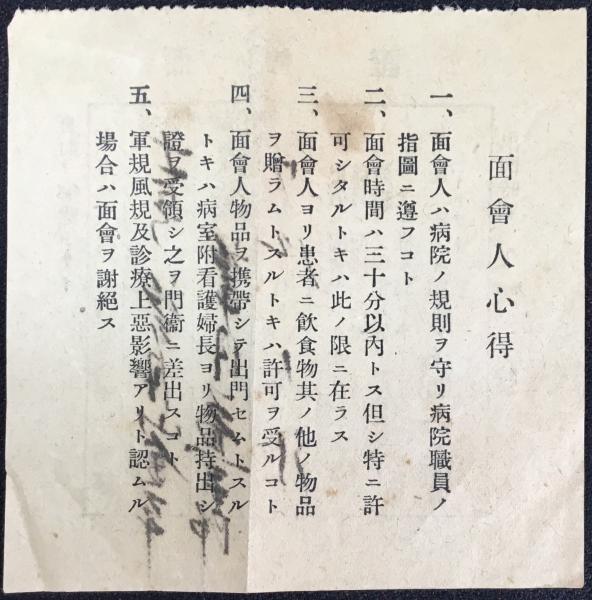 面會人心得
一、面會人ハ病院ノ規則ヲ守リ病院職員ノ
指圖ニ遵フコト
二、面會時間ハ三十分以內トス但シ特ニ許
可シタルトキハ此ノ限ニ在ラス
三、面會人ヨリ患者ニ飮食物其ノ他ノ物品
ヲ贈ラムトスルトキハ許可ヲ受ルコト
四、面會人物品ヲ携帶シテ出門セムトスル
トキハ病室附看護婦長ヨリ物品持出シ
證ヲ受領シ之ヲ門衞ニ差出スコト
五、軍規風規及診療上惡影響アリト認ムル
場合ハ面會ヲ謝絕ス